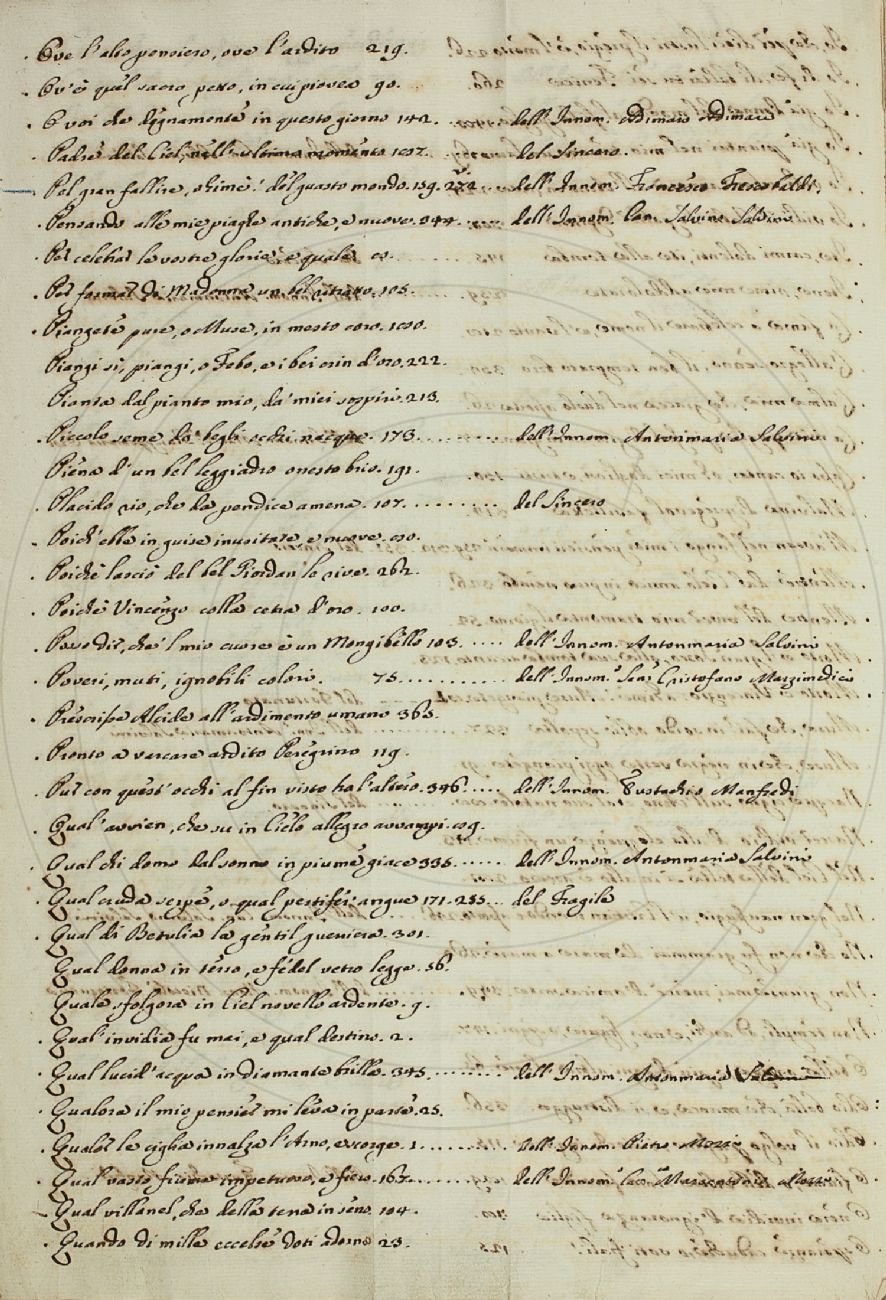 . Ove l'alto pensiero, ove l'ardito 219.
. Ov'è quel sacro petto, in cui piovea 90.
. O voi che degnamente in questo giorno 142. ... dell'Innom. Adimaro Adimari
. Padre del Ciel, nell'ultimo momento 107. ... del Sincero.
Pel gran fallire, ohimè! del guasto mondo. 159. 272 ... dell'Innom. Francesco Frescobaldi.
. Pensando alle mie piaghe antiche, e nuove. 344. .... dell'Innom. Can. Salvino Salvini
. Per celebrar le vostre glorie, e quale
. Per formar di Madonna un bel ritratto. 105.
. Piangete pure, o Muse, in mesto coro.
Piangi sì, piangi, o Febo, e i bei crin d'oro. 222.
Pianta dal pianto mio, da' miei sospiri. 213.
. Piccolo seme da' begli occhi nacque. 173. ........ dell'Innom. Antonmaria Salvini
Piena d'un bel leggiadro onesto brio. 191.
. Placido rio, che da pendice amena. 107. ......... del Sincero
. Poich'ebbe in guise inusitate, e nuove.
. Poichè lasciò del bel Giordan le rive. 262.
. Poichè Vincenzo colla cetra d'oro. 100.
. Posso dir, che'l mio cuore è un Mongibello 103. .... dell'Innom. Antonmaria Salvini
. Poveri, muti, ignobili colori. 75. ........... dell'Innom. Sen. Cristofano Marzimedici
. Prescrisse Alcide all'ardimento umano 363.
. Pronto a varcare ardito Peregrino 119.
. Pur con quest'occhi al fin visto ho l'altero. 346. .... dell'Innom. Eustachio Manfredi
. Qual'avvien, che su in Cielo allegro avvampi.
. Qual chi domo dal sonno in piume giace 335. ...... dell'Innom. Antonmaria Salvini
. Qual cruda serpe, o qual pestifer angue 171. 255... del Fragile
. Qual di Betulia la gentil guerriera. 301.
Qual donna in terso, e fedel vetro legge. 56.
. Quale sfolgora in Ciel novello ardente. 9.
. Qual'invidia fu mai, e qual destino. 2.
. Qual lucid'acqua in diamante brilla. 345. ........ dell'Innom. Antonmaria Salvini
. Qualora il mio pensier mi leva in parte. 25.
. Qualor le ciglia innalza l'Arno, e scorge. 1. ....... dell'Innom. Pietro Mozzi
. Qual vasto fiume impetuoso, e fiero. 167. ....... dell'Innom. Cav. Marcantonio Mozzi
. Qual villanel, che della terra in seno. 104.
. Quando di mille eccelse doti adorno 23.